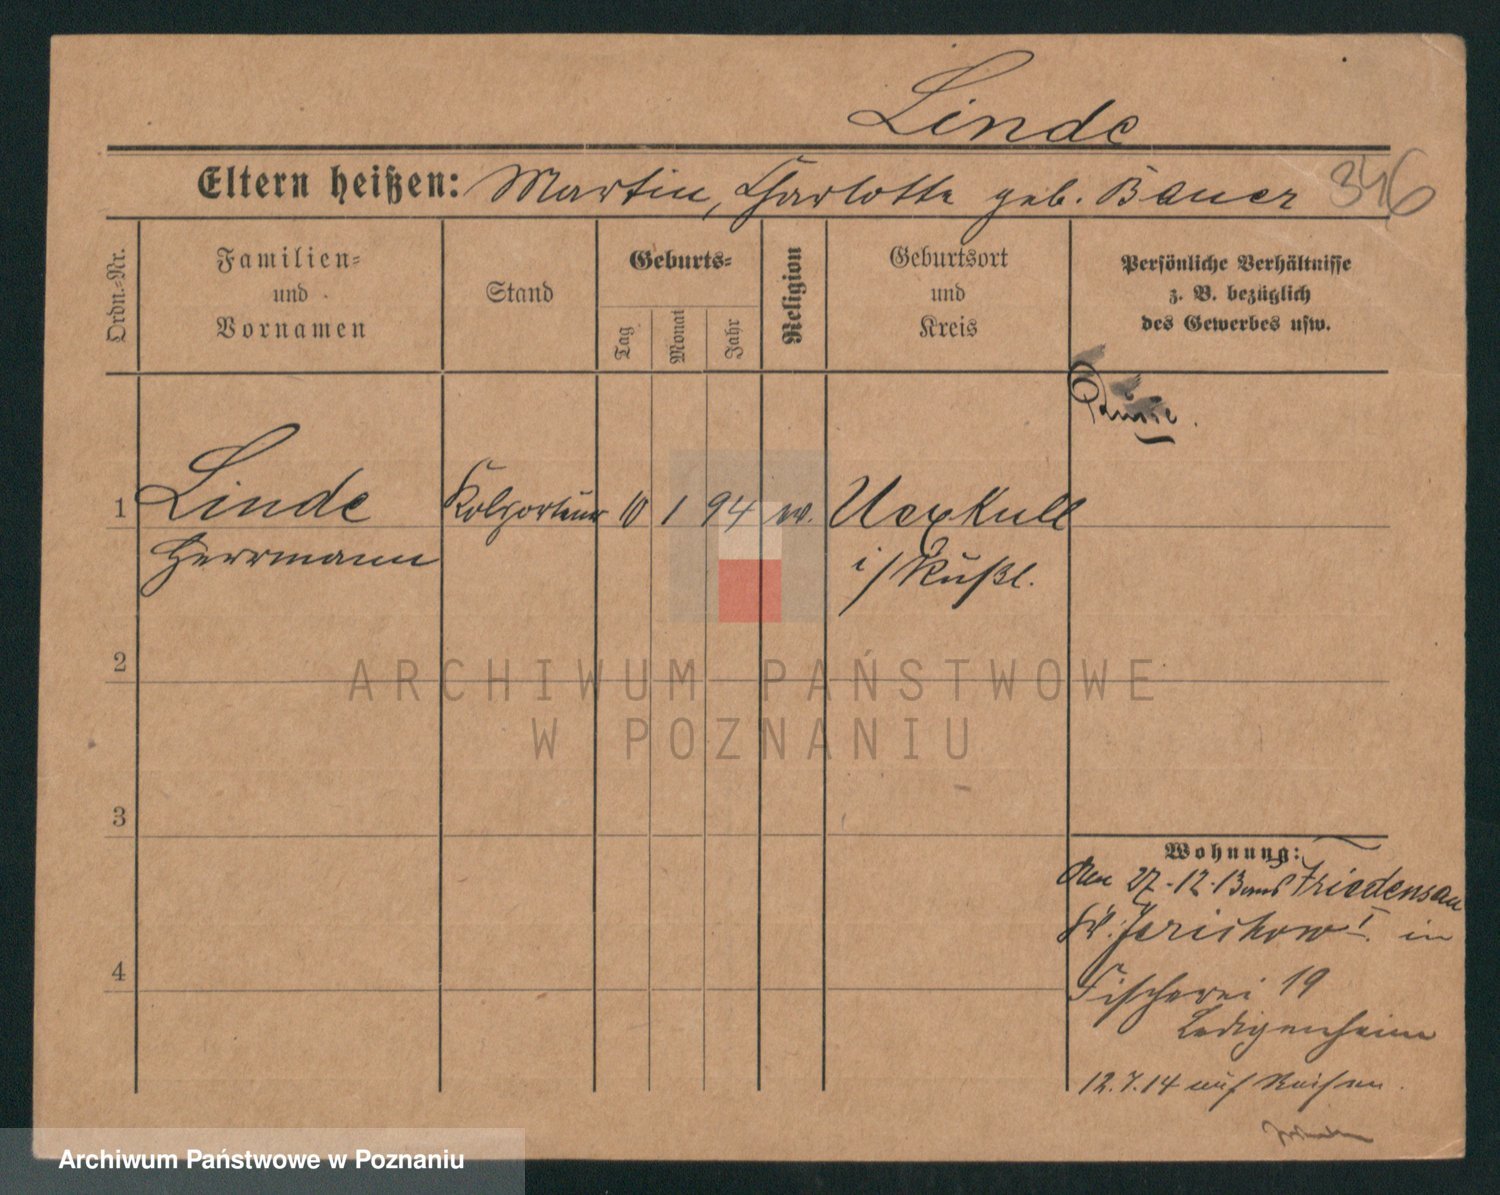 Linde
Eltern heißen: Martin, Charlotte geb. Bauer 346
Ordn.-Nr.
Familien-
und
Vornamen
Stand
Geburts-
Tag
Monat
Jahr
Religion
Geburtsort
und
Kreis
Persönliche Verhältnisse
z. B. bezüglich
des Gewerbes usw.
1 Linde Kolporteur 10 1 94 w. Uexkull
Herrmann i/Rußl.
2
3
4
Wohnung:
27.12.13 aus Friedensau
Jerichow I. in
Fischerei 19
Ledigenheim
12.7.14 auf Reisen.
ARCHIWUM PAŃSTWOWE
W POZNANIU
Archiwum Państwowe w Poznaniu